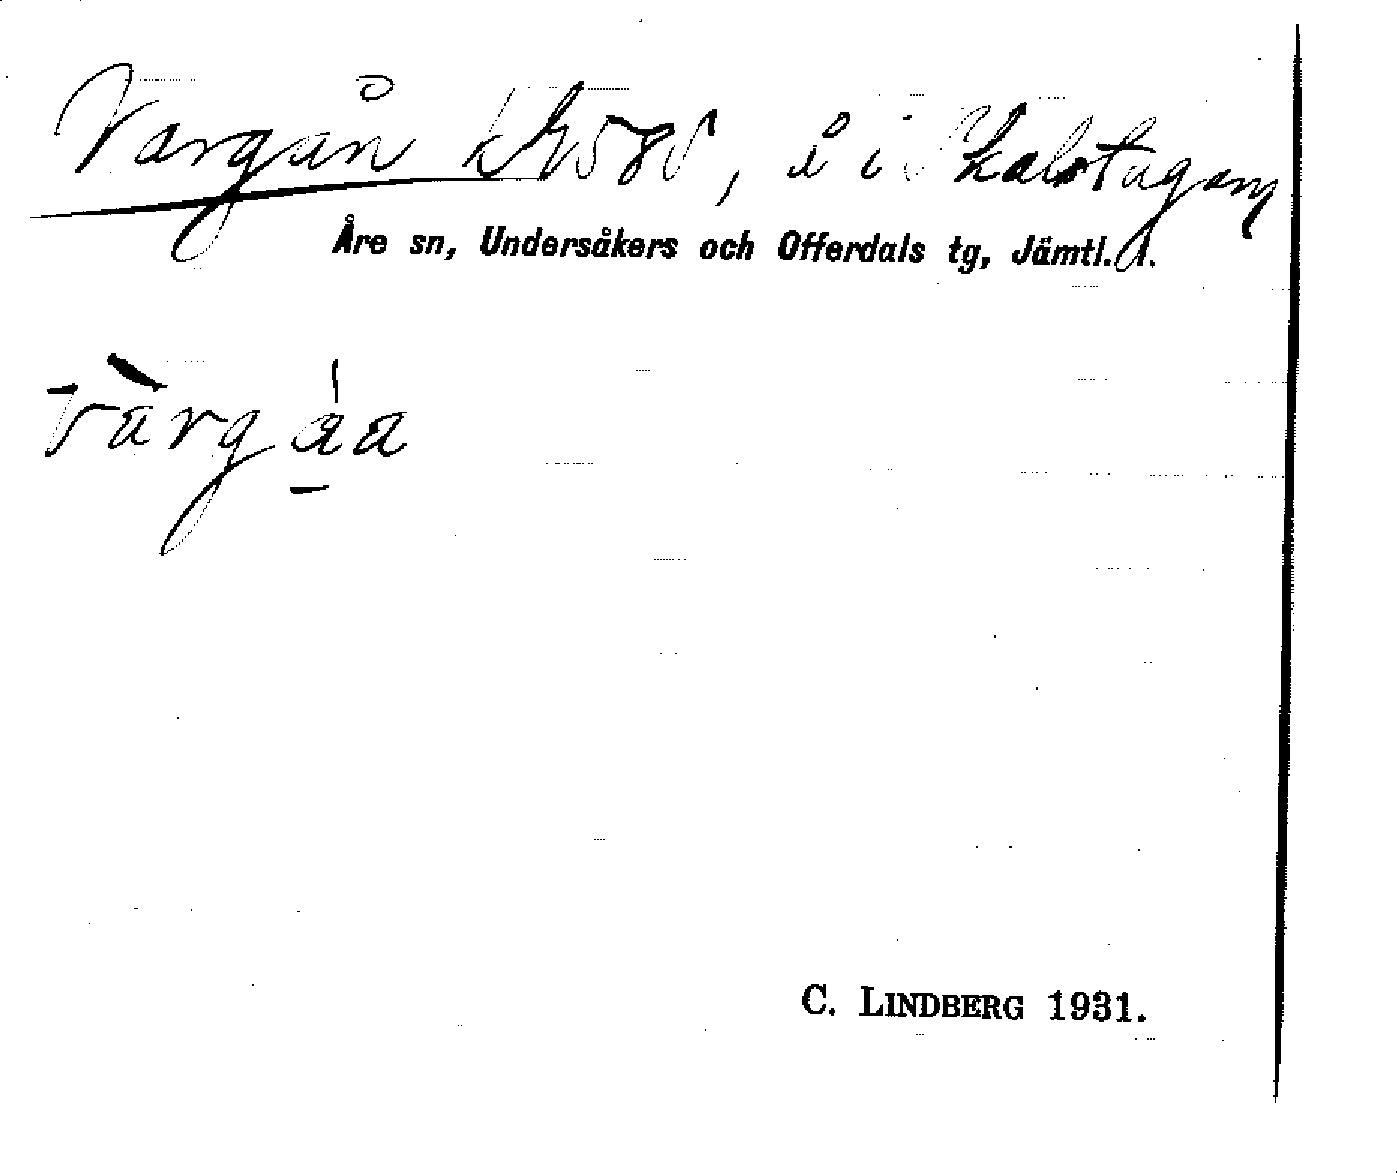 Vargån
Åre sn, Undersåkers och Offerdals tg, Jämtl. l.
vàrgáa
C. LINDBERG 1931.